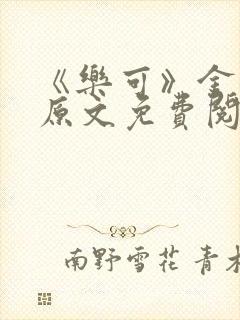 《樂可》金
原文免費閱
南野雪花 青木